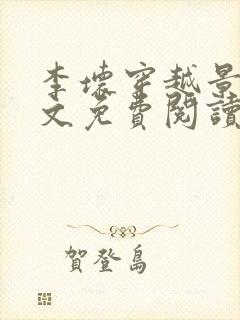 李壞穿越景
文免費閱讀
賀登島